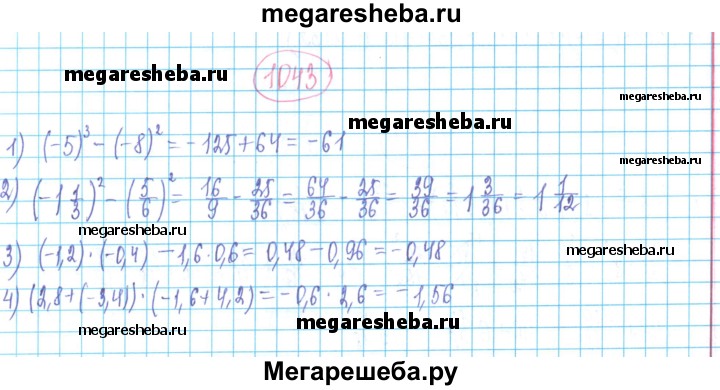 megaresheba.ru
1043
megaresheba.ru
megaresheba.ru
1) (-5)³ - (-8)² = -125 + 64 = -61
megaresheba.ru
2) (-1 1/3)² - (5/6)² = 16/9 - 25/36 = 64/36 - 25/36 = 39/36 = 1 3/36 = 1 1/12
megaresheba.ru
3) (-1,2) · (-0,4) - 1,6 · 0,6 = 0,48 - 0,96 = -0,48
4) (2,8 + (-3,4)) · (-1,6 + 4,2) = -0,6 · 2,6 = -1,56
megaresheba.ru
megaresheba.ru
Мегарешеба.ру